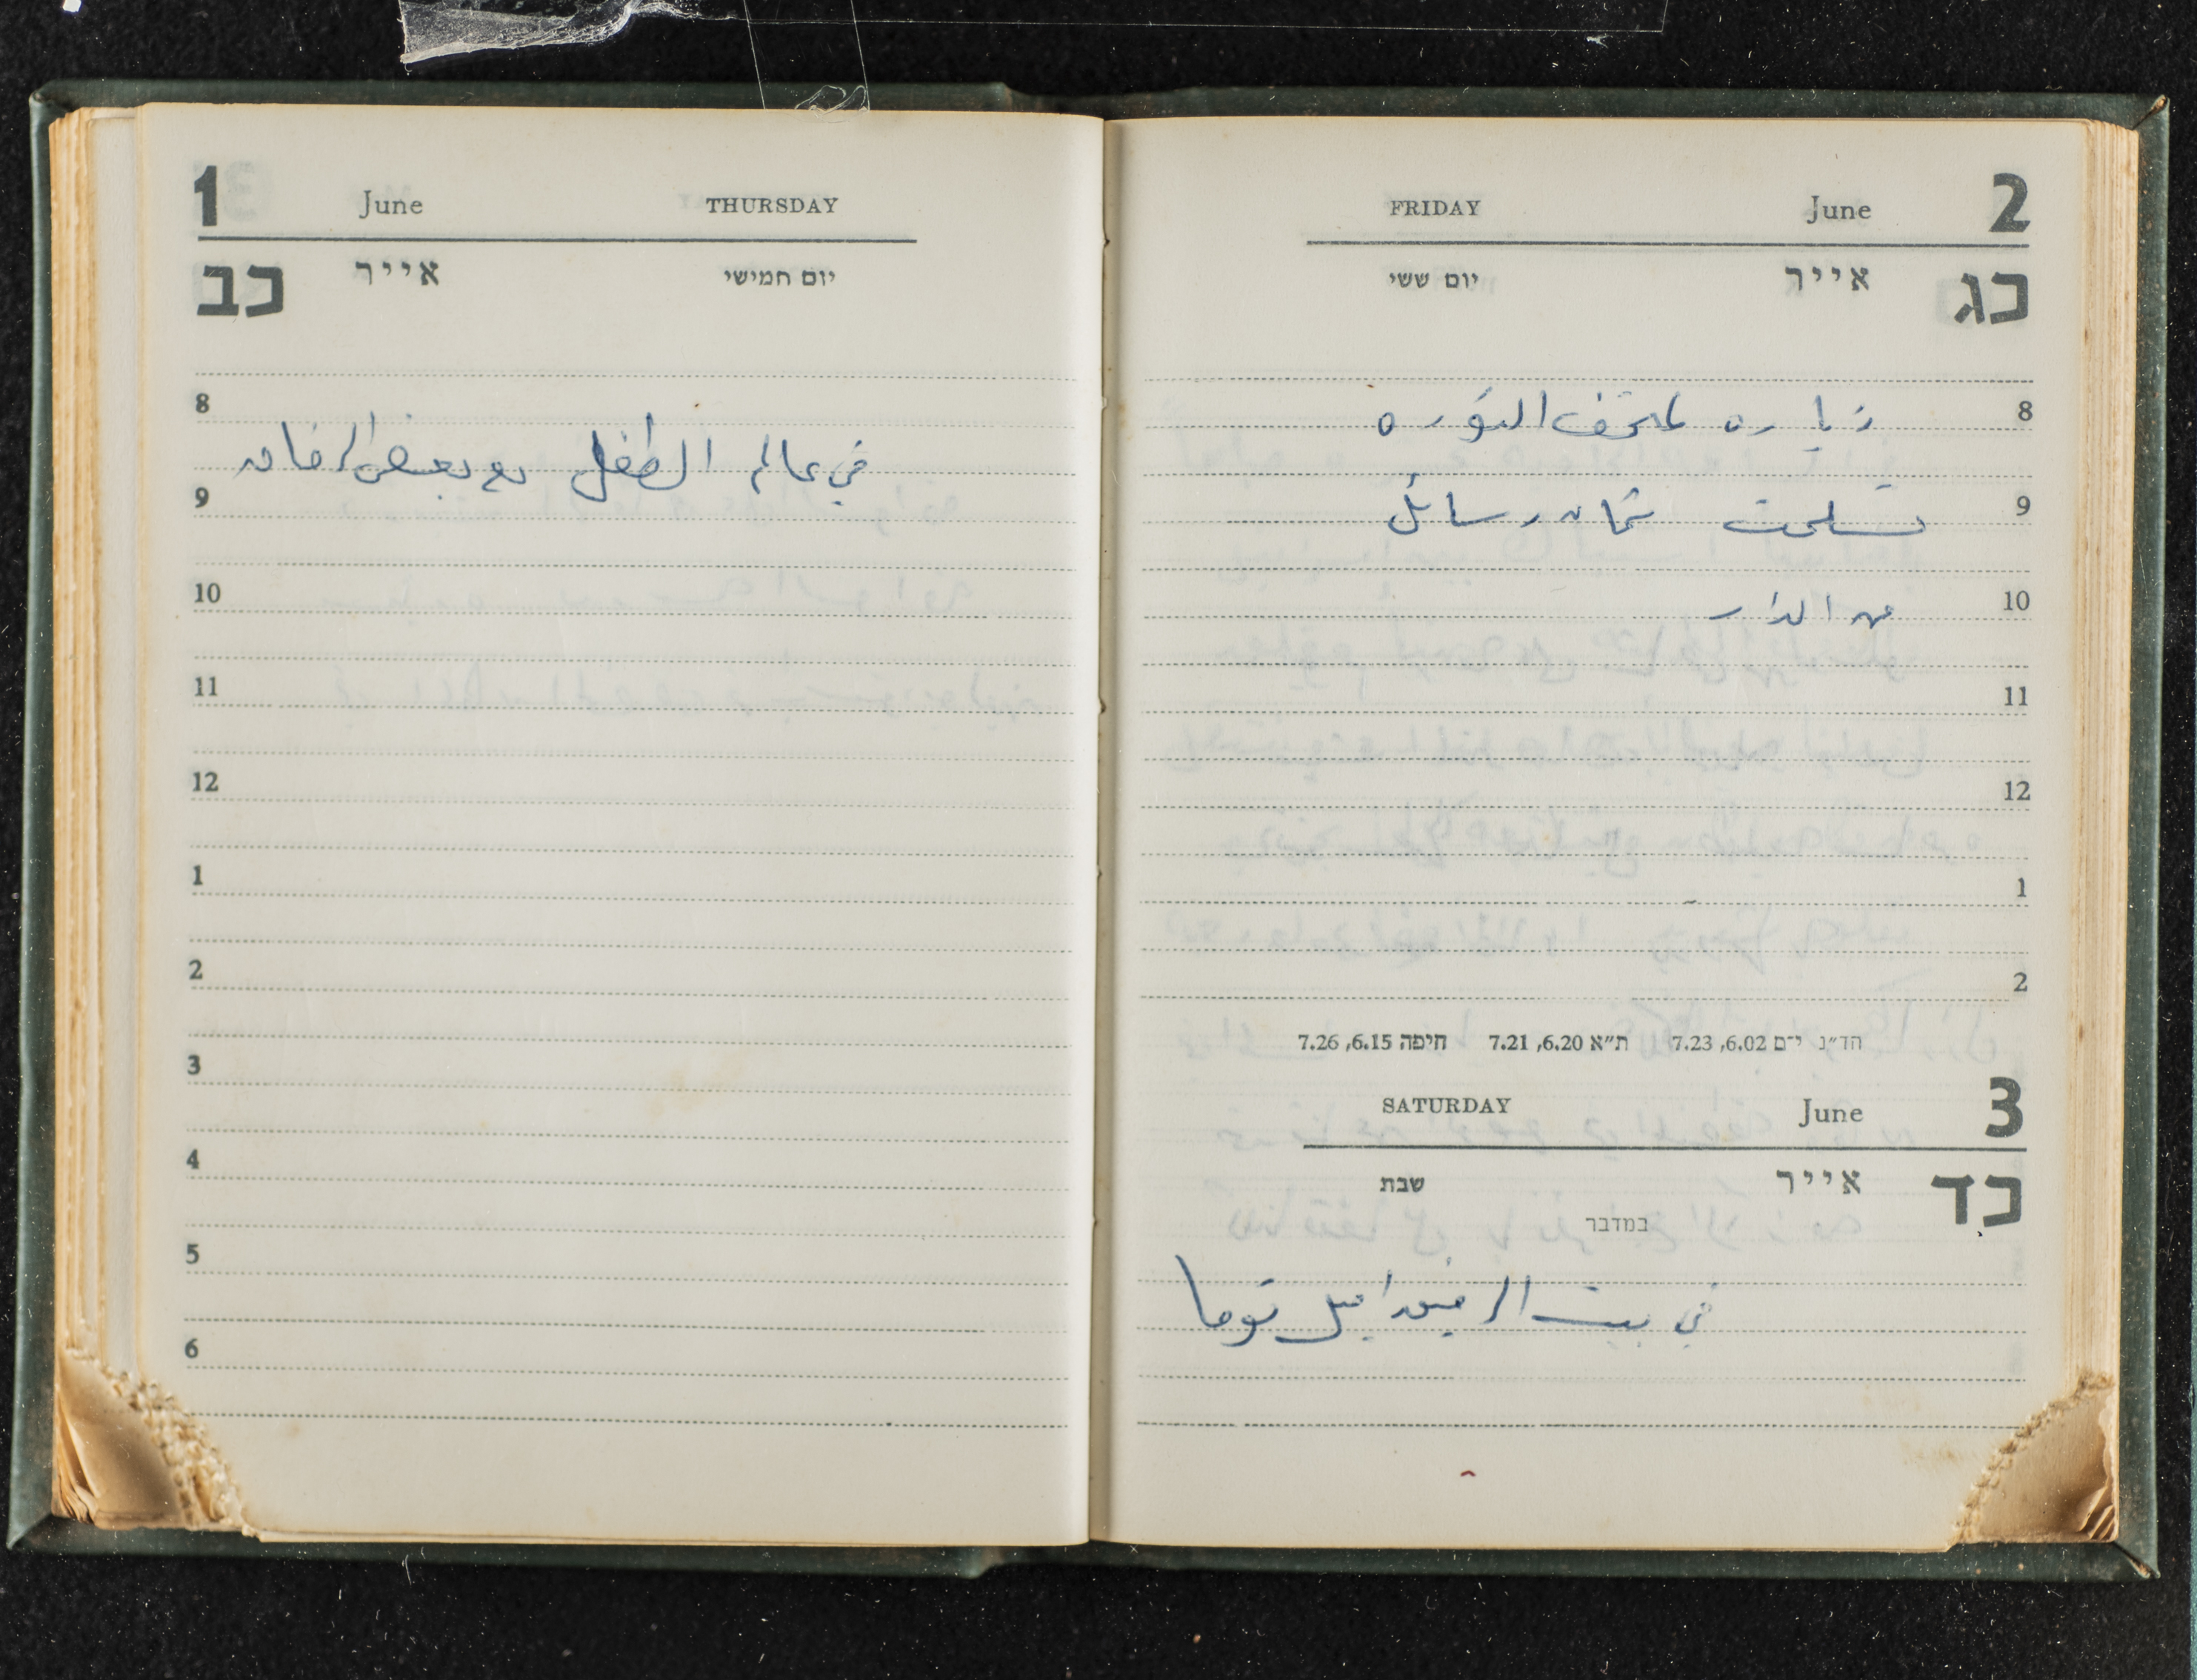 1 June THURSDAY
כב אייר יום חמישי
8
في عالم الطفل مع بعض الرفاق
9
10
11
12
1
2
3
4
5
6
FRIDAY June 2
כג אייר יום ששי
8
زياره لمتحف الثوره
9
تسلمت ثمان رسائل
10
من الدار
11
12
1
2
הד״נ י־ם 6.02, 7.23 ת״א 6.20, 7.21 חיפה 6.15, 7.26
SATURDAY June 3
כד אייר שבת
במדבר
في بيت الرفيق اميل توما